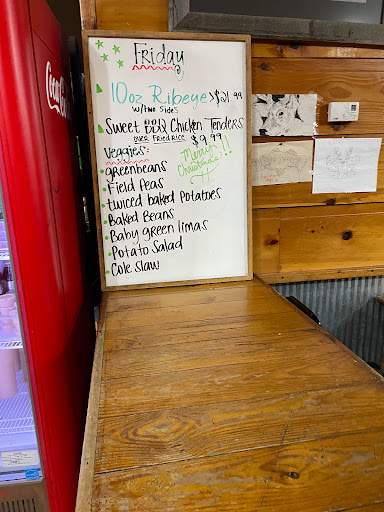 Friday
10oz Ribeye $21.99
w/two sides
Sweet BBQ Chicken Tenders
over Fried rice $9.99
Veggies:
Merry Christmas!!
greenbeans
Field Peas
twiced baked Potatoes
Baked Beans
Baby green limas
Potato Salad
Cole Slaw
Coca-Cola